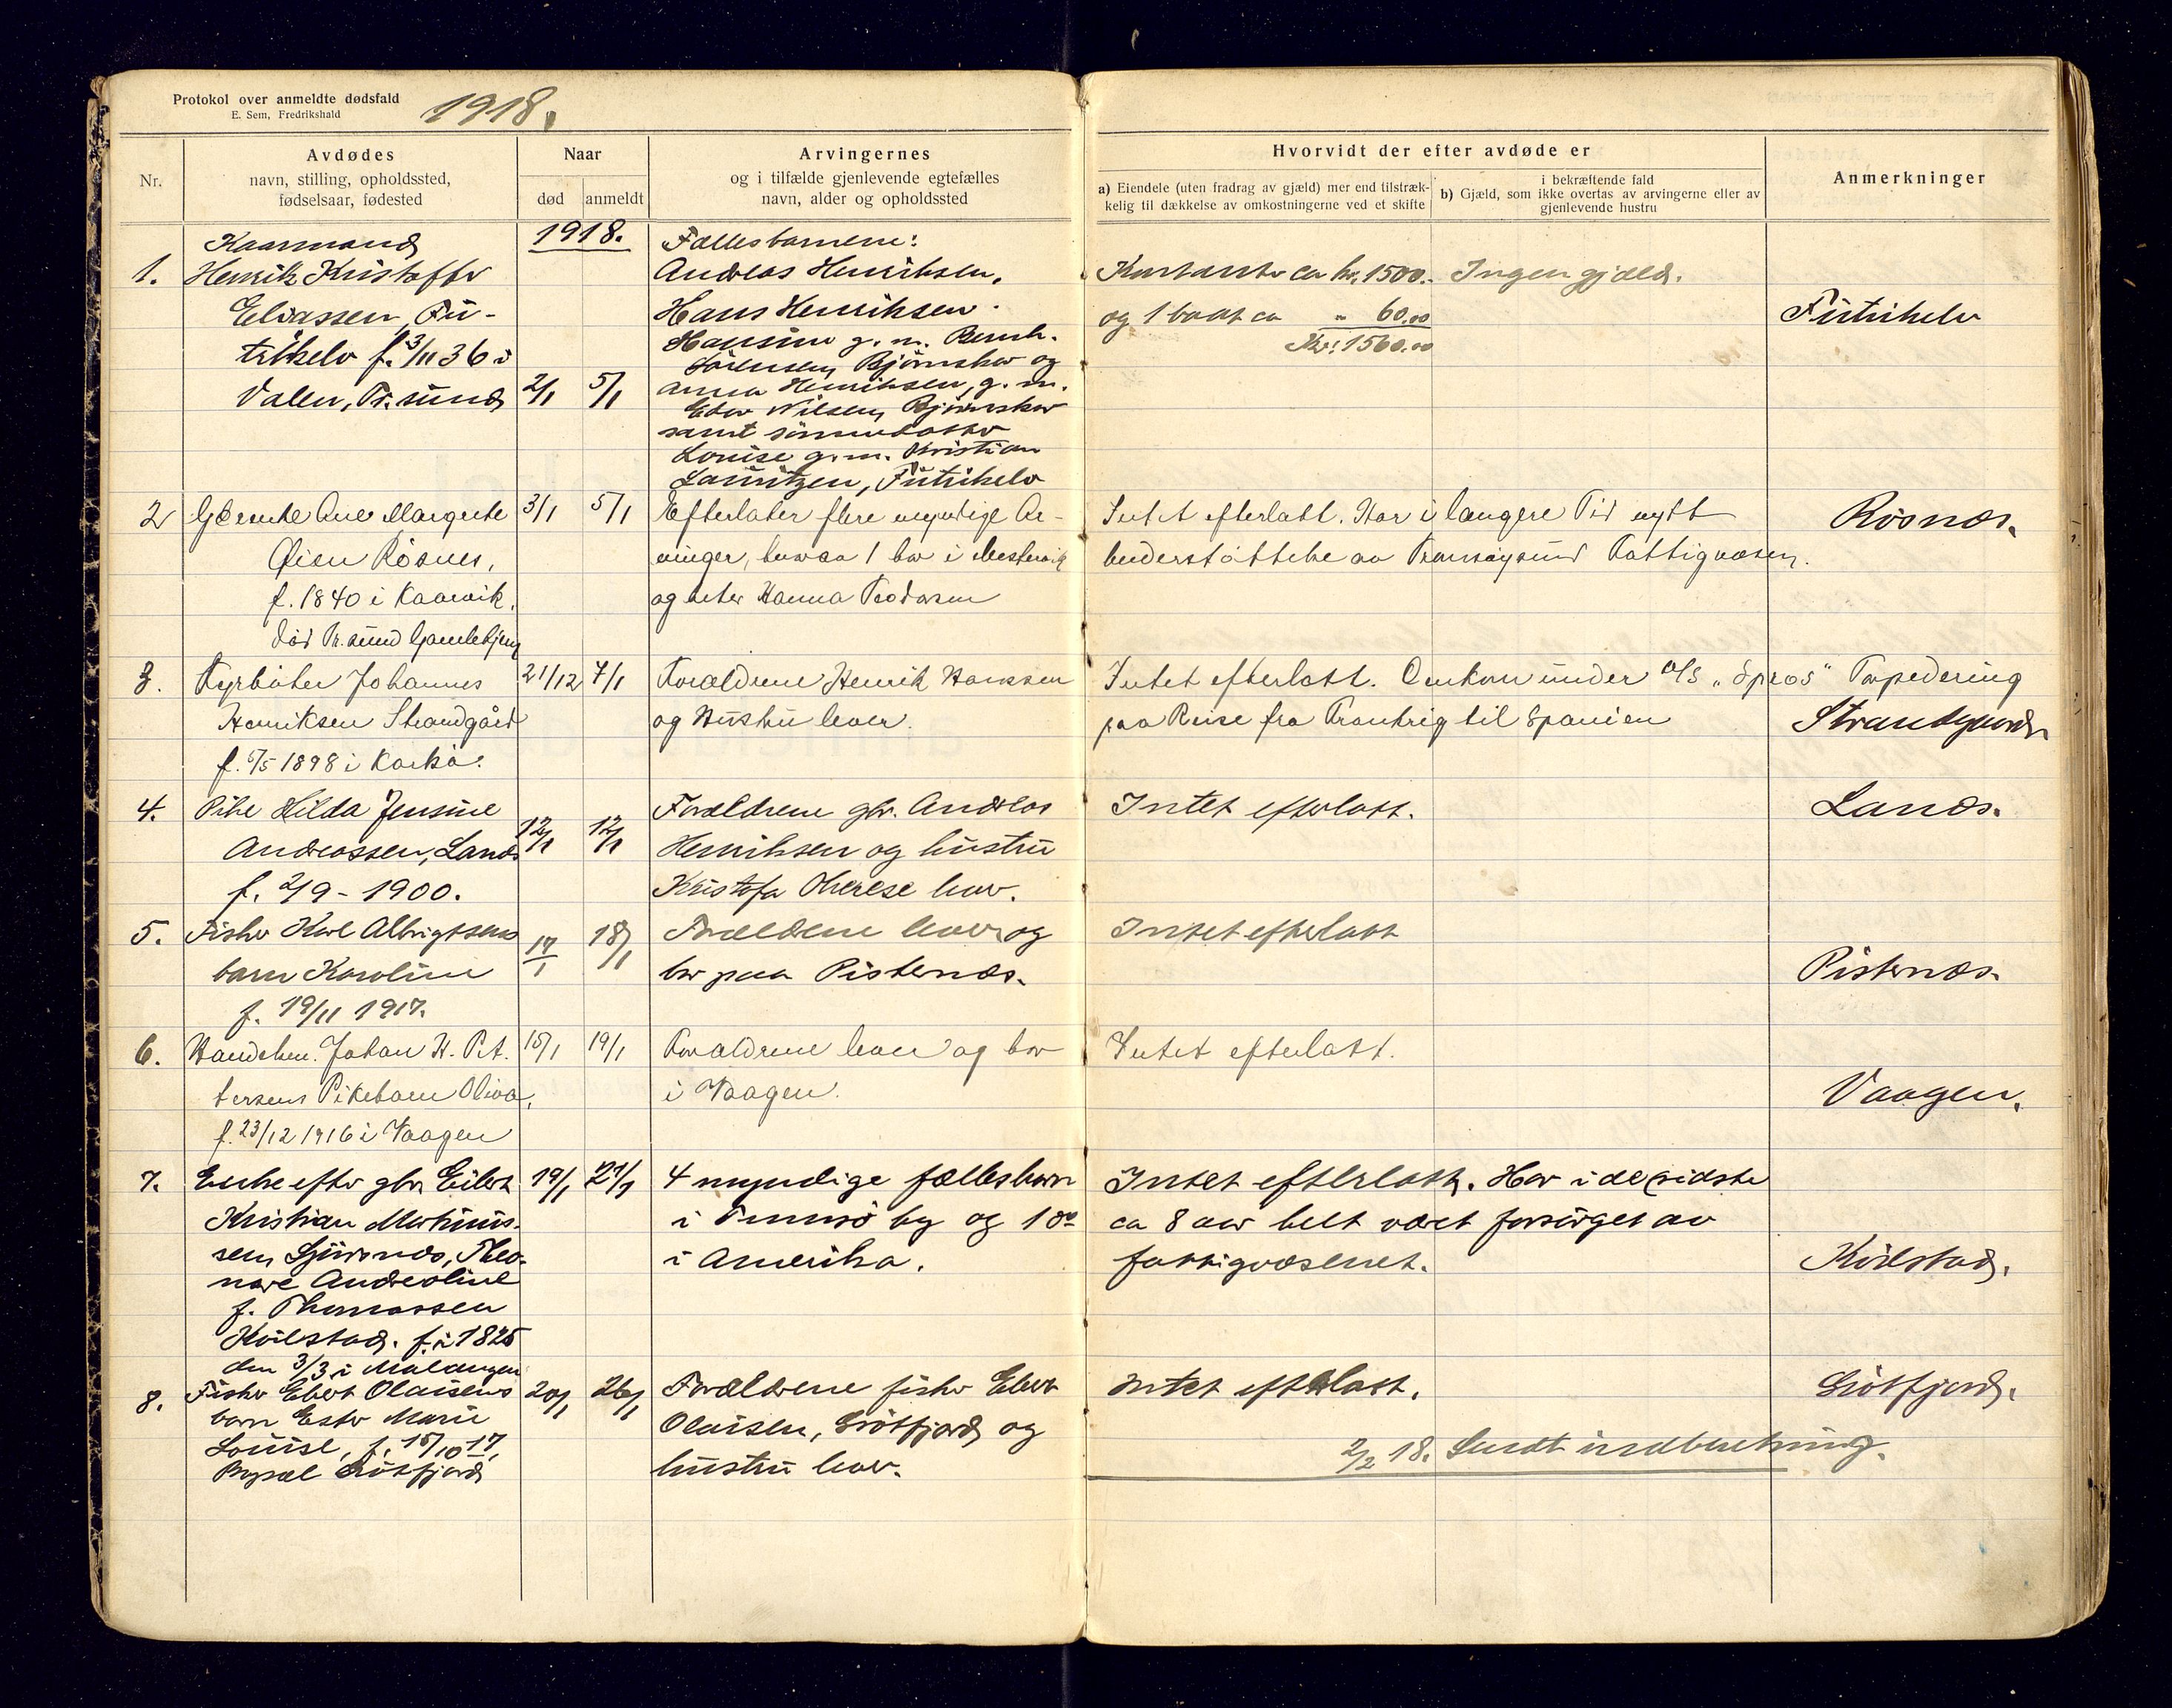 Protokol over anmeldte dødsfald
E. Sem, Fredrikshald
1918.
Nr.
Avdødes
navn, stilling, opholdssted,
fødselsaar, fødested
Naar
død
anmeldt
Arvingernes
og i tilfælde gjenlevende egtefælles
navn, alder og opholdssted
Hvorvidt der efter avdøde er
a) Eiendele (uten fradrag av gjæld) mer end tilstræk-
kelig til dækkelse av omkostningerne ved et skifte
i bekræftende fald
b) Gjæld, som ikke overtas av arvingerne eller av
gjenlevende hustru
Anmerkninger
1918.
1.
Kaarmand
Henrik Kristoffer
Eliassen, Fu-
trikelv f. 3/11 36 i
Valen, Tr.sund
2/1
5/1
Fællesbarnene:
Andreas Henriksen,
Hans Henriksen.
Hansine g. m. Bernh.
Sørensen, Bjørnskar og
Anna Henriksen, g. m.
Edv. Nilsen, Bjørnskar
samt sønnedatter
Louise g. m. Kristian
Lauritzen, Futrikelv
Kontanter ca kr. 1500.-
og 1 baat ca " 60.00
Kr. 1560.00
Ingen gjæld.
Futrikelv
2
Gåmle Ane Margrete
Øien Rösnes,
f. 1840 i Kaarvik,
död Tr.sund Gamlehjem
3/1
5/1
Efterlater flere myndige Ar-
vinger, hvoraa 1 bor i Mestervik
og heter Hanna Teodorsen
Intet efterlatt. Har i længere Tid nytt
understøttelse av Tromsøysund Fattigvæsen.
Rösnæs.
3.
Fyrböter Johannes
Henriksen Strandgård
f. 5/5 1898 i Karlsö.
21/12
7/1
Forældrene Henrik Hanssen
og Hustru lever.
Intet efterlatt. Omkom under D/S "Spros" Torpedering
paa Reise fra Frankrig til Spanien
Strandgaard.
4.
Pike Hilda Jensine
Andreassen, Lanæs
f. 2/9 - 1900.
12/1
12/1
Forældrene gbr. Andreas
Henriksen og hustru
Kristofa Therese lever.
Intet efterlatt.
Lanæs.
5.
Fisker Karl Albrigtsens
barn Karoline
f. 19/11 1917.
17/1
18/1
Forældrene lever og
bor paa Pisternæs.
Intet efterlatt
Pisternæs.
6.
Handelsm. Johan H. Pet.
tersens Pikebarn Oliva,
f. 23/12 1916 i Vaagen
15/1
19/1
Forældrene lever og bor
i Vaagen.
Intet efterlatt.
Vaagen.
7.
Enke efter gbr. Eilert
Kristian Martinus-
sen, Sjursnæs, Theo-
nore Andreoline
f. Thomassen
Kvilstad. f. i 1825
den 3/3 i Malangen
19/1
21/1
4 myndige fællesbarn
i Tromsö by og 1 do
i Amerika.
Intet efterlatt. Har i de sidste
ca 8 aar helt været forsörget av
fattigvæsenet.
Kvilstad.
8.
Fisker Ebert Olaisens
barn Ester Marie
Louise, f. 15/10 17,
Bopæl Grötfjord
20/1
26/1
Forældrene fisker Ebert
Olaisen, Grötfjord og
hustru lever.
Intet efterlatt.
Grötfjord.
2/2 18. Sendt indberetning.